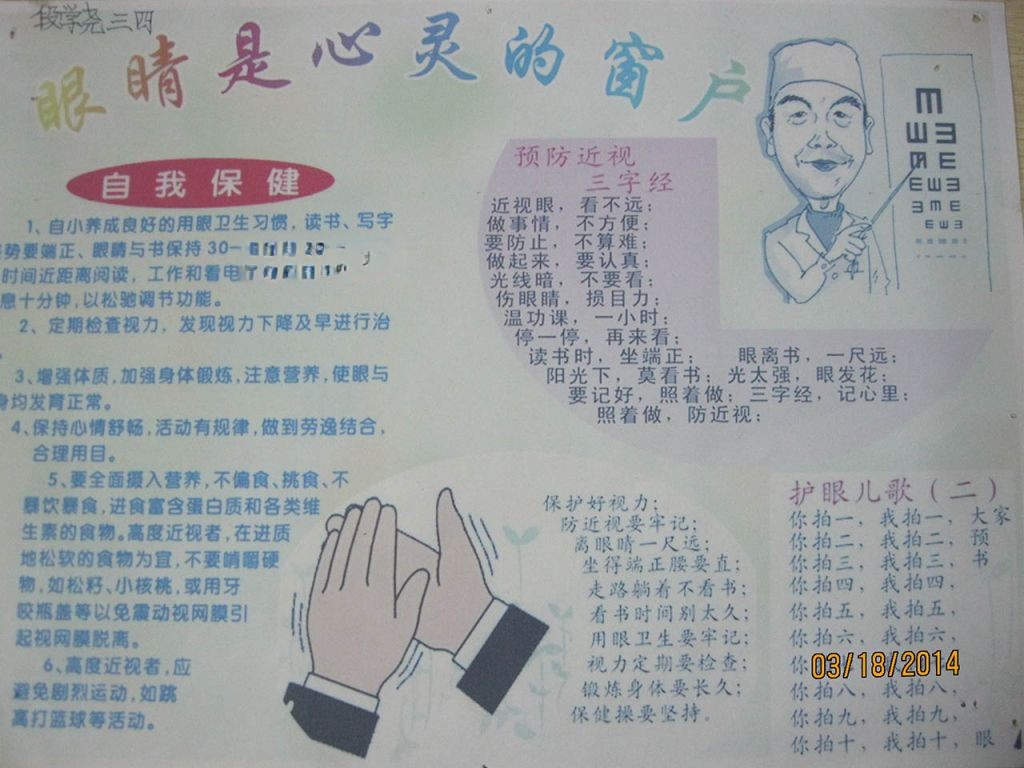 段学尧 三四
眼睛是心灵的窗户
自我保健
1、自小养成良好的用眼卫生习惯，读书、写字
势要端正、眼睛与书保持30一
时间近距离阅读，工作和看电
息十分钟，以松驰调节功能。
2、定期检查视力，发现视力下降及早进行治
3、增强体质，加强身体锻炼，注意营养，使眼与
身均发育正常。
4、保持心情舒畅，活动有规律，做到劳逸结合，
合理用目。
5、要全面摄入营养，不偏食、挑食、不
暴饮暴食，进食富含蛋白质和各类维
生素的食物。高度近视者，在进质
地松软的食物为宜，不要啃嚼硬
物，如松籽、小核桃，或用牙
咬瓶盖等以免震动视网膜引
起视网膜脱离。
6、高度近视者，应
避免剧烈运动，如跳
高打蓝球等活动。
预防近视
三字经
近视眼，看不远；
做事情，不方便；
要防止，不算难；
做起来，要认真；
光线暗，不要看；
伤眼睛，损目力；
温功课，一小时；
停一停，再来看；
读书时，坐端正； 眼离书，一尺远；
阳光下，莫看书；光太强，眼发花；
要记好，照着做；三字经，记心里；
照着做，防近视；
保护好视力；
防近视要牢记；
离眼睛一尺远；
坐得端正腰要直；
走路躺着不看书；
看书时间别太久；
用眼卫生要牢记；
视力定期要检查；
锻炼身体要长久；
保健操要坚持。
护眼儿歌（二）
你拍一，我拍一，大家
你拍二，我拍二，预
你拍三，我拍三，书
你拍四，我拍四，
你拍五，我拍五，
你拍六，我拍六，
你
你拍八，我拍八，
你拍九，我拍九，
你拍十，我拍十，眼
03/18/2014